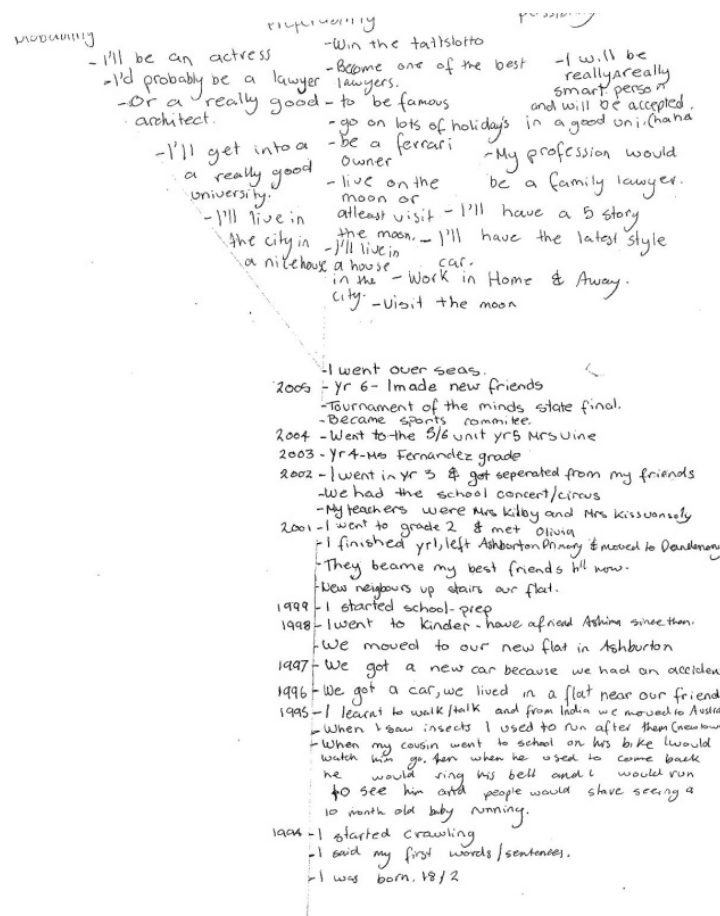 Probability
Preferability
Possibility
- I'll be an actress
- I'd probably be a lawyer
- Or a really good
architect.
- I'll get into a
a really good
university.
- I'll live in
the city in
a nice house
- Win the tattslotto
- Become one of the best
lawyers.
- to be famous
- go on lots of holidays
- be a ferrari
owner
- live on the
moon or
atleast visit
the moon.
- I'll live in
a house
in the
city.
- I will be
really really
smart person
and will be accepted
in a good uni.
- My profession would
be a family lawyer.
- I'll have a 5 story
- I'll have the latest style
car.
- Work in Home & Away.
- Visit the moon
- I went over seas.
2005 - Yr 6 - I made new friends
- Tournament of the minds state final.
- Became sports commitee.
2004 - Went to the 5/6 unit yr5 Mrs Vine
2003 - Yr 4 - Ms Fernandez grade
2002 - I went in yr 3 & got seperated from my friends
- We had the school concert/circus
- My teachers were Mrs Kilby and Mrs
2001 - I went to grade 2 & met Olivia
- I finished yr1, left Ashburton Primary & moved to Dandenong
- They became my best friends till now.
- New neigbours up stairs our flat.
1999 - I started school - prep
1998 - I went to kinder - have a friend Ashima since then.
- We moved to our new flat in Ashburton
1997 - We got a new car because we had an acciden
1996 - We got a car, we lived in a flat near our friend
1995 - I learnt to walk/talk and from India we moved to Austra
- When I saw insects I used to run after them
- When my cousin went to school on his bike I would
watch him go. then when he used to come back
he would ring his bell and I would run
to see him and people would stave seeing a
10 month old baby running.
1994 - I started crawling
- I said my first words/sentences.
- I was born. 18/2